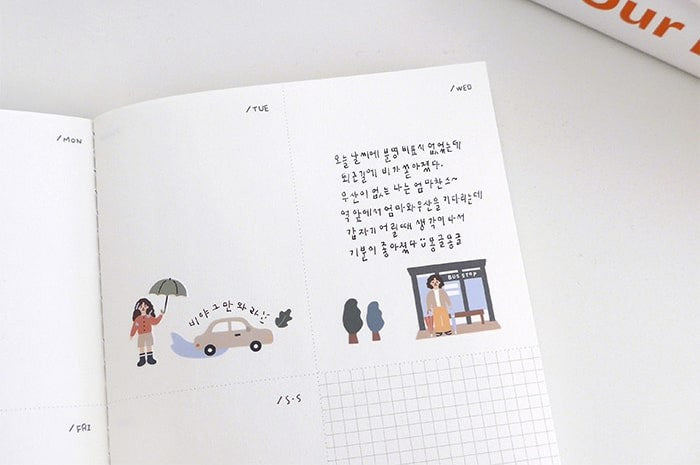 our
/MON
/TUE
/WED
오늘 날씨에 분명 비표시 없었는데
퇴근길에 비가 쏟아졌다.
우산이 없는 나는 엄마찬스~
역 앞에서 엄마와 우산을 기다리는데
갑자기 어릴때 생각이 나서
기분이 좋아졌다 :) 몽글몽글
비야 그만 와라
BUS STOP
/FRI
/S·S